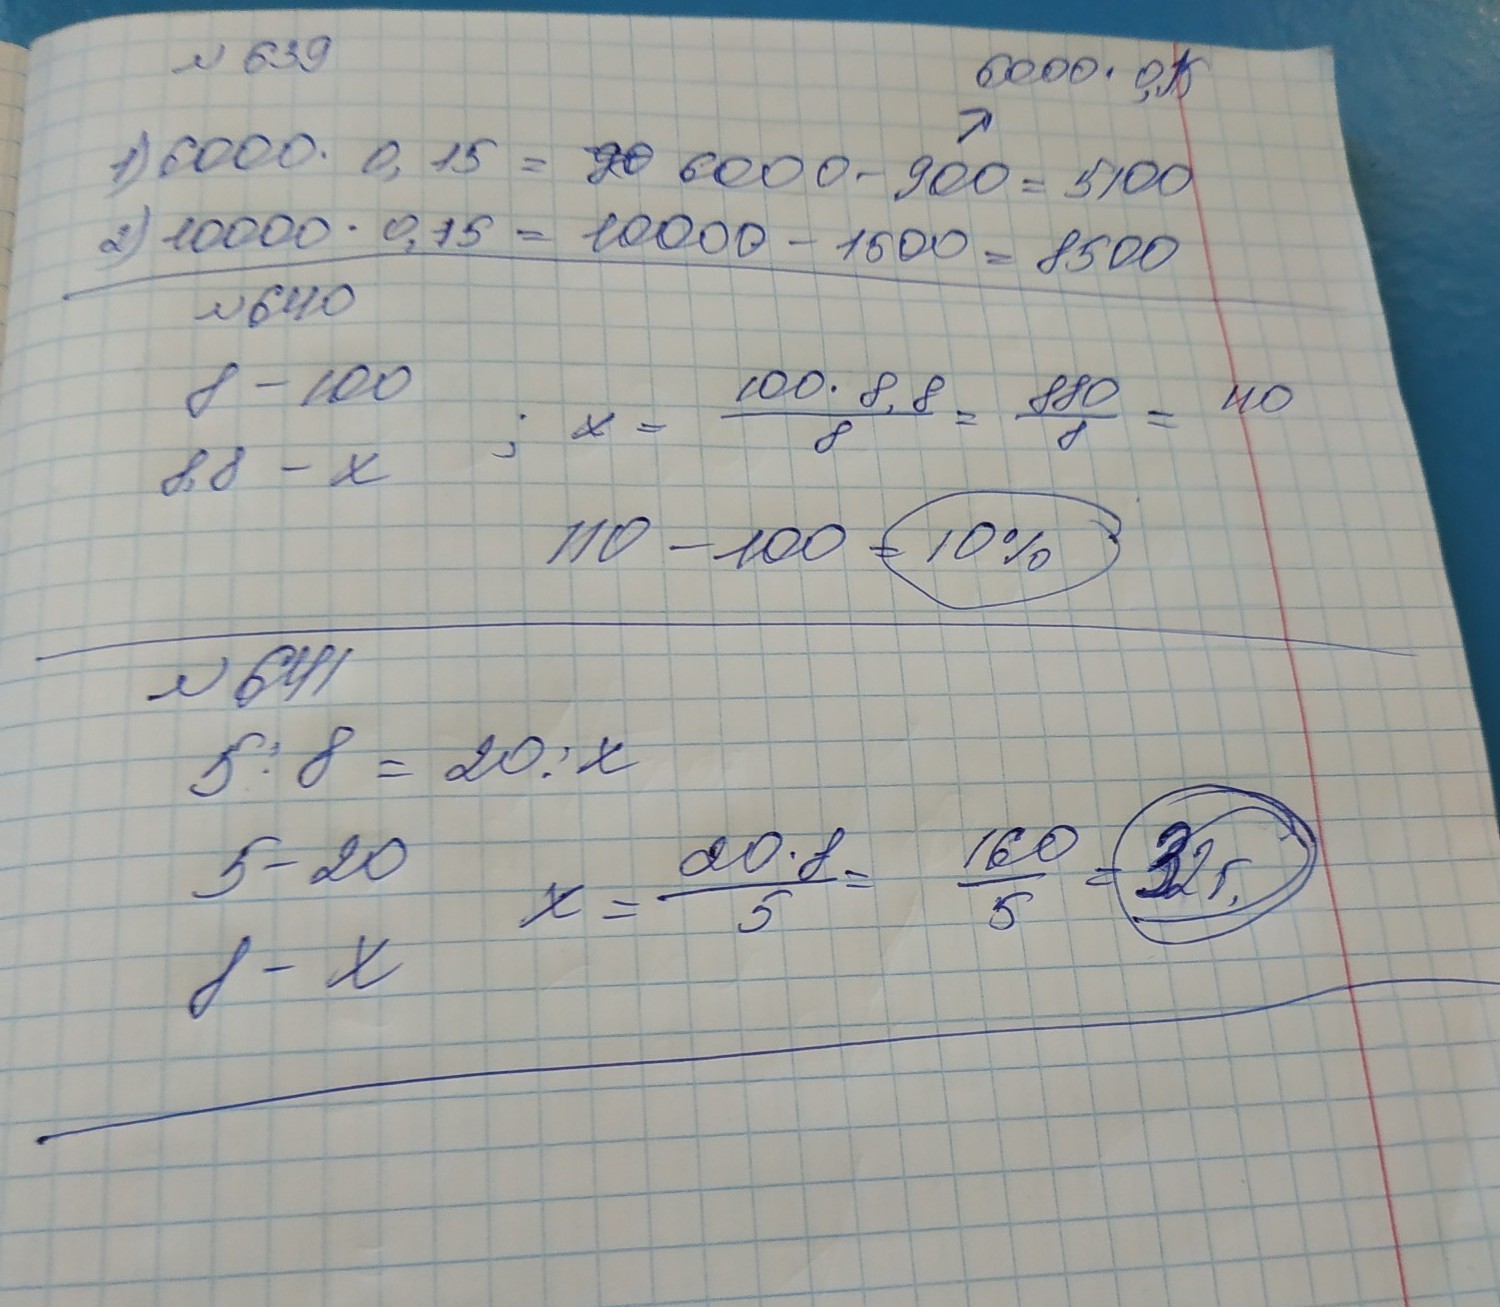 № 639
6000 · 0,15
1) 6000 · 0,15 = 6000 - 900 = 5100
2) 10000 · 0,15 = 10000 - 1500 = 8500
№ 640
8 - 100
8,8 - x ; x = 100 · 8,8 / 8 = 880 / 8 = 110
110 - 100 = 10%
№ 641
5 : 8 = 20 : x
5 - 20
x = 20 · 8 / 5 = 160 / 5 = 32 г.
8 - x